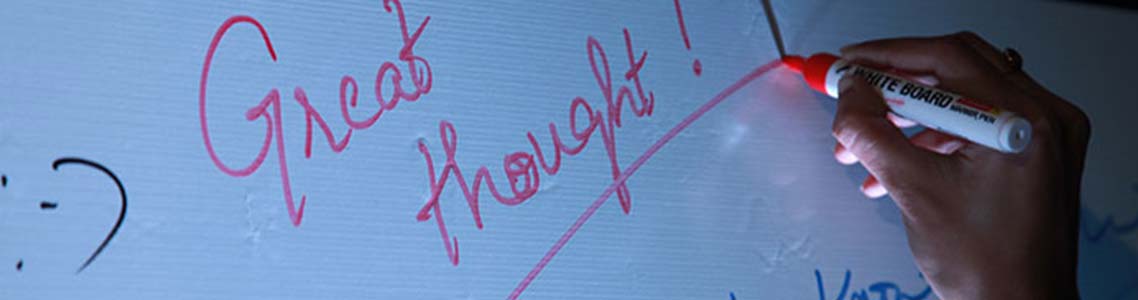 Great
thought!
:-)
WHITE BOARD
MARKER PEN